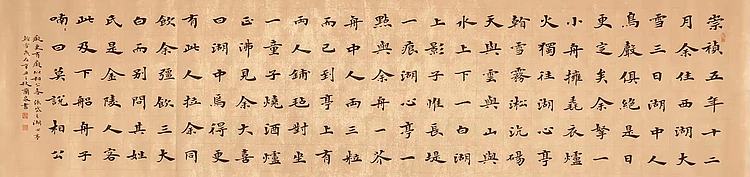 崇禎五年十二
月余住西湖大
雪三日湖中人
鳥聲俱絕是日
更定矣余拏一
小舟擁毳衣爐
火獨往湖心亭
看雪霧淞沆碭
天與雲與山與
水上下一白湖
上影子惟長堤
一痕湖心亭一
點與余舟一芥
舟中人兩三粒
而已到亭上有
兩人鋪氈對坐
一童子燒酒爐
正沸見余大喜
曰湖中焉得更
有此人拉余同
飲余彊飲三大
白而別問其姓
氏是金陵人客
此及下船舟子
喃〻曰莫說相公
癡更有癡似相公者 張岱之湖心亭
看雪